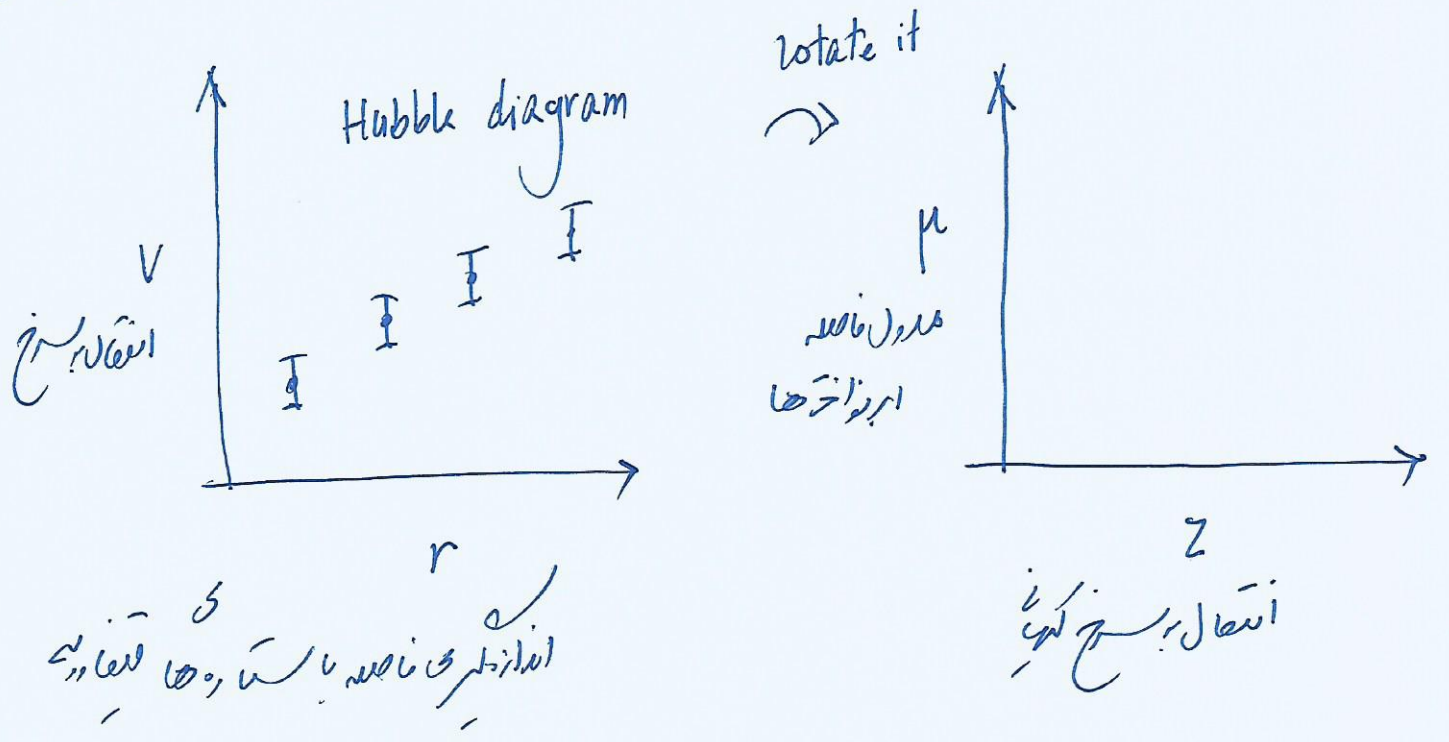 Hubble diagram
V
انتقال به سرخ
r
اندازه‌گیری فاصله با ستاره‌های قیفاووسی
rotate it
μ
مدول فاصله
ابرنواخترها
z
انتقال به سرخ کیهانی